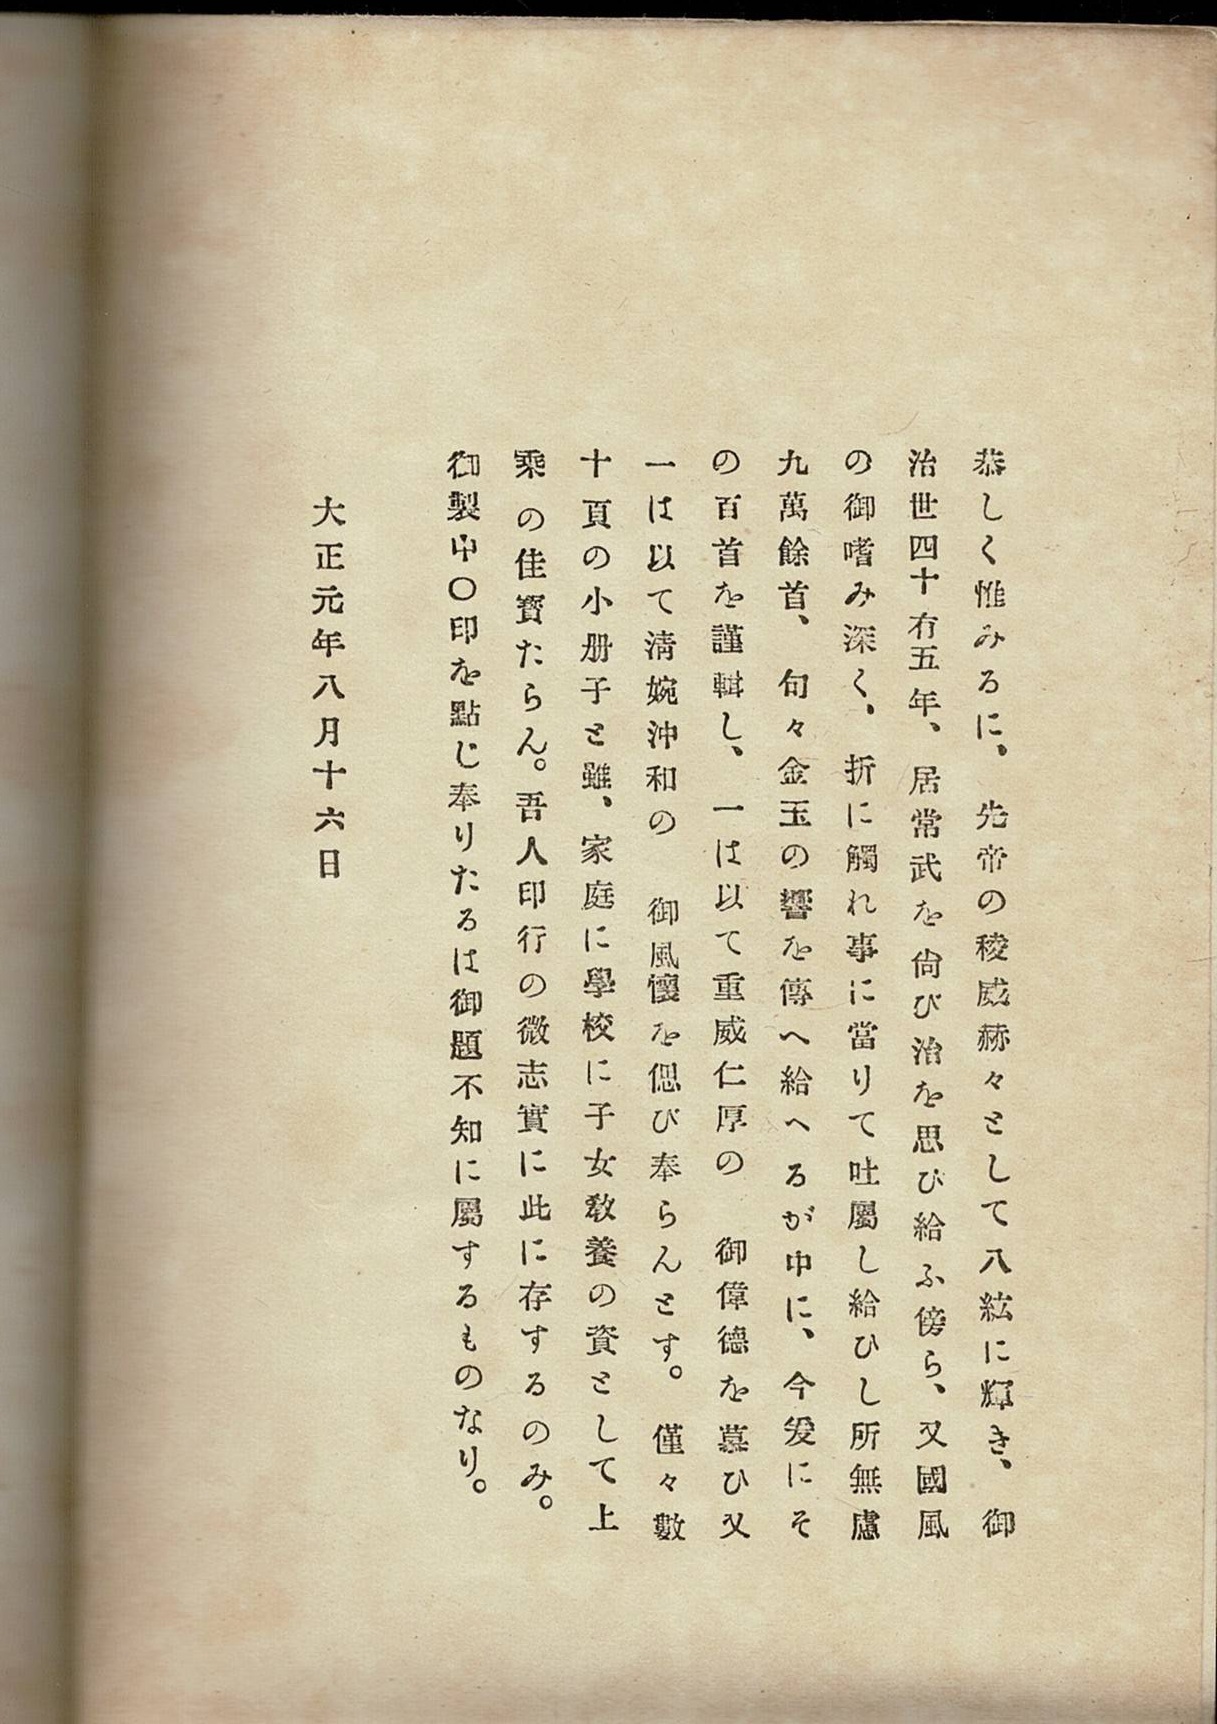 恭しく惟みるに、 先帝の稜威赫々として八紘に輝き、御
治世四十有五年、居常武を尙び治を思ひ給ふ傍ら、又國風
の御嗜み深く、折に觸れ事に當りて吐屬し給ひし所無慮
九萬餘首、句々金玉の響を傳へ給へるが中に、今爰にそ
の百首を謹輯し、一は以て重威仁厚の 御偉德を慕ひ又
一は以て淸婉沖和の 御風懷を偲び奉らんとす。僅々數
十頁の小册子と雖、家庭に學校に子女敎養の資として上
乘の佳寶たらん。吾人印行の微志實に此に存するのみ。
御製中〇印を點じ奉りたるは御題不知に屬するものなり。
大正元年八月十六日